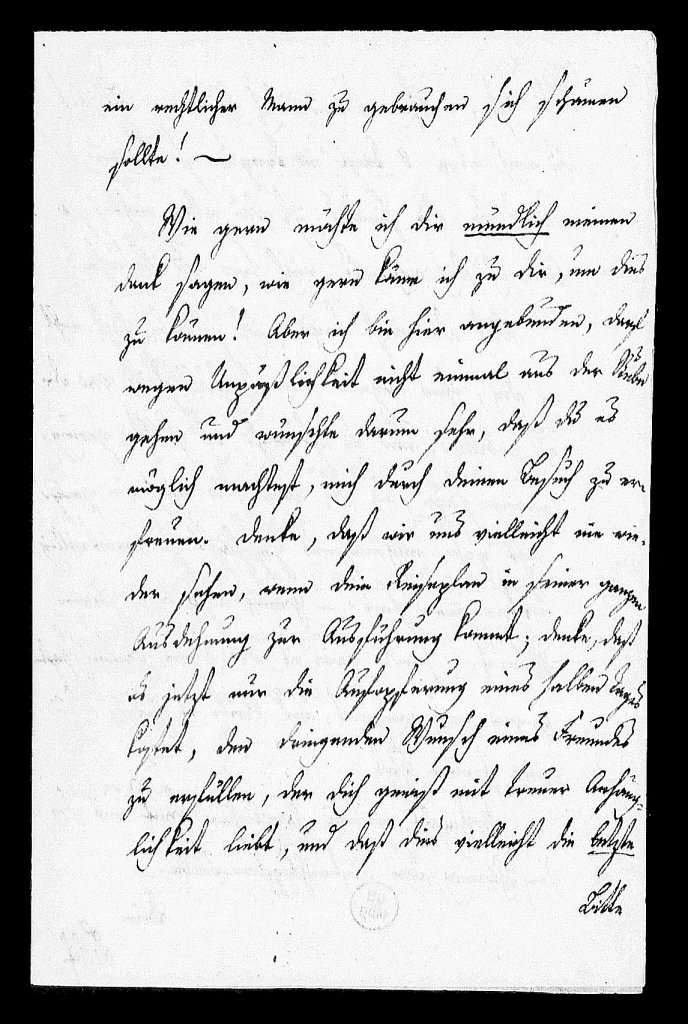 ein rechtlicher Mann zu gebrauchen sich schämen
sollte! —
Wie gern möchte ich dir mündlich meinen
Dank sagen, wie gern käme ich zu dir, um dies
zu können! Aber ich bin hier angebunden, darf
wegen Unpäßlichkeit nicht einmal aus der Stube
gehen und wünschte darum sehr, daß du es
möglich machtest, mich durch deinen Besuch zu er-
freuen. Denke, daß wir uns vielleicht nie wie-
der sehen, wenn dein Reiseplan in seiner ganzen
Ausdehnung zur Ausführung kommt; denke, daß
es jetzt nur die Aufopferung eines halben Tages
kostet, den dringenden Wunsch eines Freundes
zu erfüllen, der dich gewiß mit treuer Anhäng-
lichkeit liebt, und daß dies vielleicht die letzte
Bitte